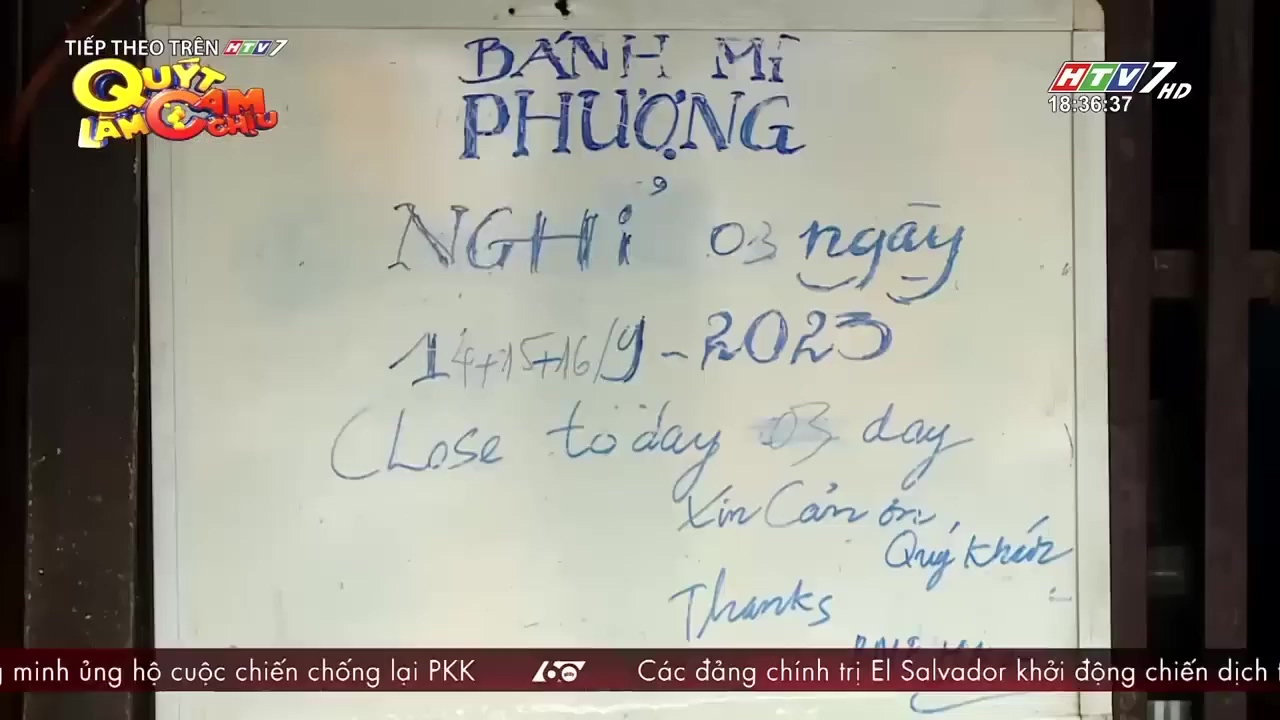 TIẾP THEO TRÊN HTV7
QUÝT LÀM CAM CHỊU
HTV7 HD
18:36:37
BÁNH MÌ
PHƯỢNG
NGHỈ 03 ngày
14+15+16/9-2023
CLose to day 03 day
Xin Cản ơn,
Quý Khách
Thanks
minh ủng hộ cuộc chiến chống lại PKK
60
Các đảng chính trị El Salvador khởi động chiến dịch